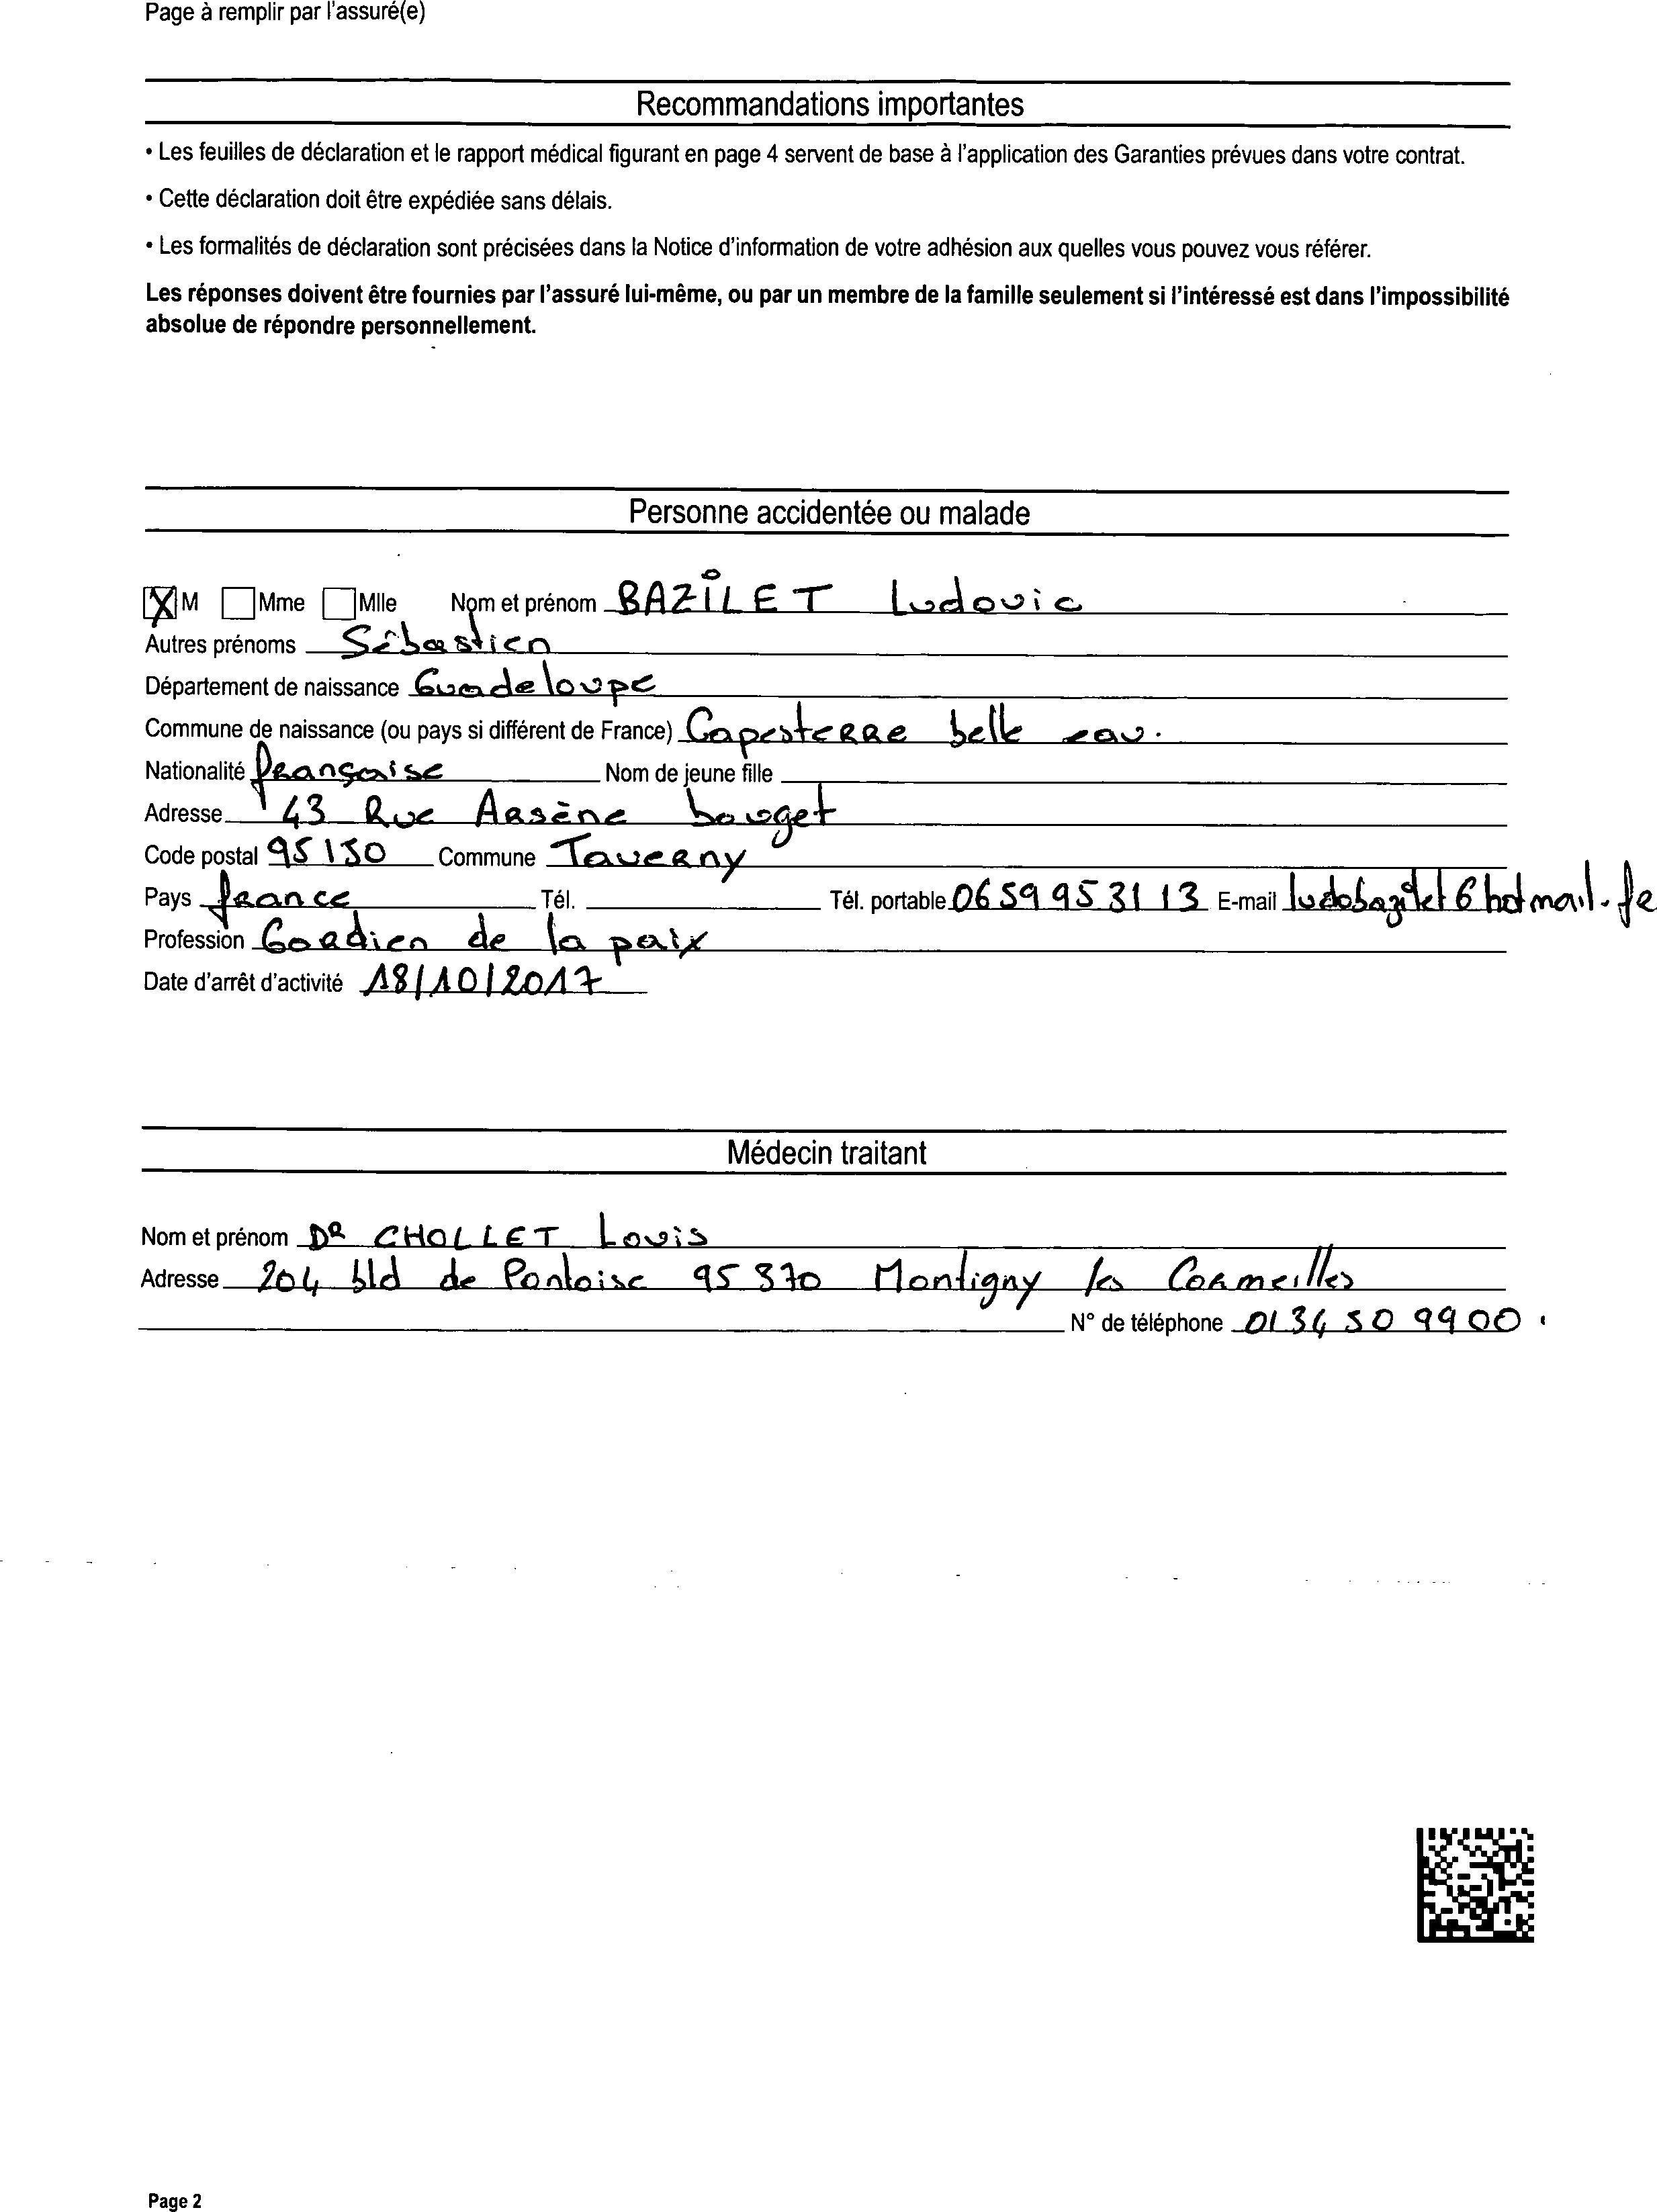 Page à remplir par l'assuré(e)
Recommandations importantes
• Les feuilles de déclaration et le rapport médical figurant en page 4 servent de base à l'application des Garanties prévues dans votre contrat.
• Cette déclaration doit être expédiée sans délais.
• Les formalités de déclaration sont précisées dans la Notice d'information de votre adhésion aux quelles vous pouvez vous référer.
Les réponses doivent être fournies par l'assuré lui-même, ou par un membre de la famille seulement si l'intéressé est dans l'impossibilité
absolue de répondre personnellement.
Personne accidentée ou malade
X M Mme Mlle Nom et prénom BAZILET Ludovic
Autres prénoms Sébastien
Département de naissance Guadeloupe
Commune de naissance (ou pays si différent de France) Capesterre belle eau.
Nationalité française Nom de jeune fille
Adresse 43 Rue Arsène bouget
Code postal 95150 Commune Taverny
Pays france Tél. Tél. portable 06 59 95 31 13 E-mail
Profession Gardien de la paix
Date d'arrêt d'activité 18/10/2017
Médecin traitant
Nom et prénom DR CHOLLET Louis
Adresse 204 bld de Pontoise 95370 Montigny les Cormeilles
N° de téléphone 01 34 50 99 00
Page 2